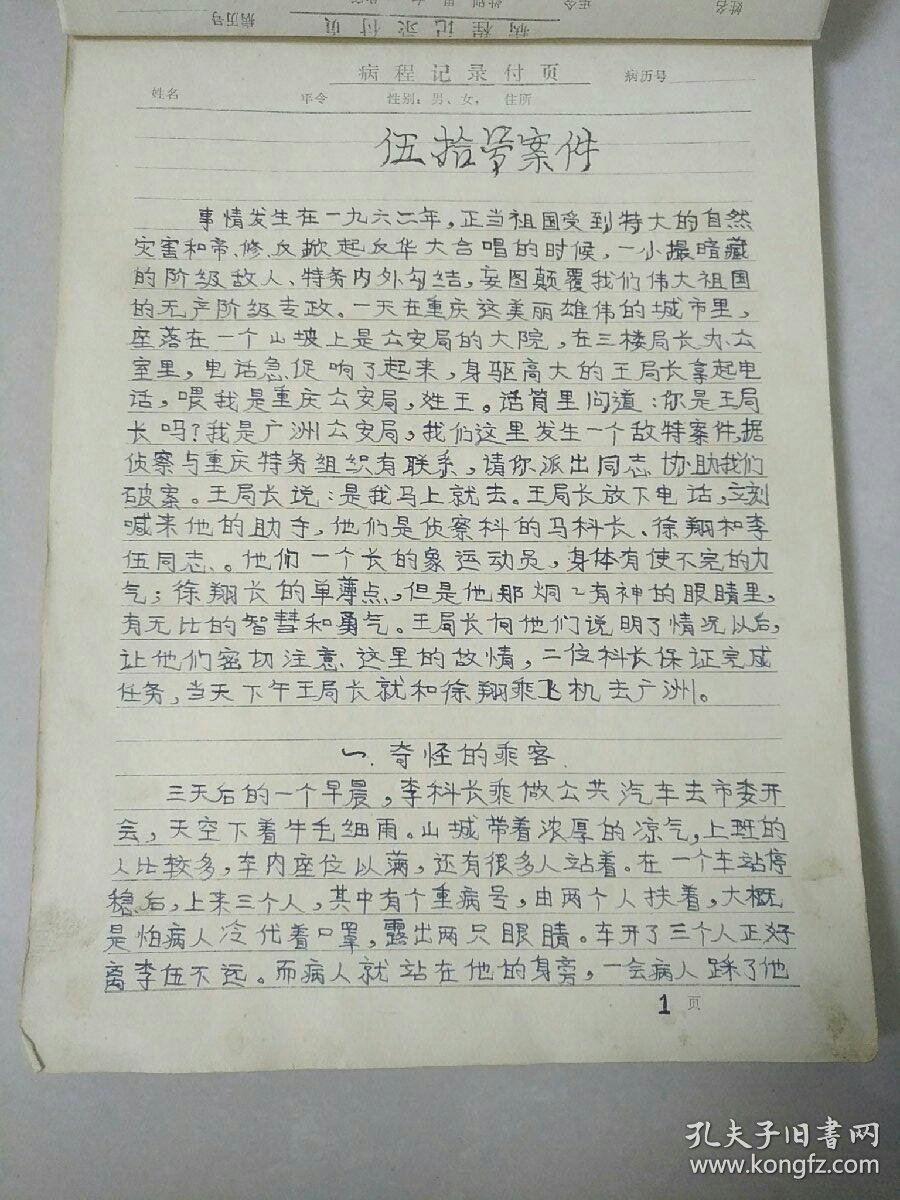 病程记录付页
病历号
姓名 年令 性别：男、女， 住所
伍拾号案件
事情发生在一九六二年，正当祖国受到特大的自然
灾害和帝、修、反掀起反华大合唱的时候，一小撮暗藏
的阶级敌人、特务内外勾结，妄图颠覆我们伟大祖国
的无产阶级专政。一天在重庆这美丽雄伟的城市里，
座落在一个山坡上是公安局的大院，在三楼局长办公
室里，电话急促响了起来，身驱高大的王局长拿起电
话，喂我是重庆公安局，姓王。话筒里问道：你是王局
长吗？我是广洲公安局，我们这里发生一个敌特案件，据
侦察与重庆特务组织有联系，请你派出同志协助我们
破案。王局长说：是我马上就去。王局长放下电话，立刻
喊来他的助手，他们是侦察科的马科长、徐翔和李
伍同志。他们一个长的象运动员，身体有使不完的力
气；徐翔长的单薄点，但是他那炯々有神的眼睛里，
有无比的智慧和勇气。王局长向他们说明了情况以后，
让他们密切注意这里的敌情，二位科长保证完成
任务，当天下午王局长就和徐翔乘飞机去广洲。
一．奇怪的乘客．
三天后的一个早晨，李科长乘做公共汽车去市委开
会，天空下着牛毛细雨。山城带着浓厚的凉气，上班的
人比较多，车内座位以满，还有很多人站着。在一个车站停
稳后，上来三个人，其中有个重病号，由两个人扶着，大概
是怕病人冷代着口罩，露出两只眼睛。车开了三个人正好
离李伍不远。而病人就站在他的身旁，一会病人踩了他
1 页
孔夫子旧书网
www.kongfz.com